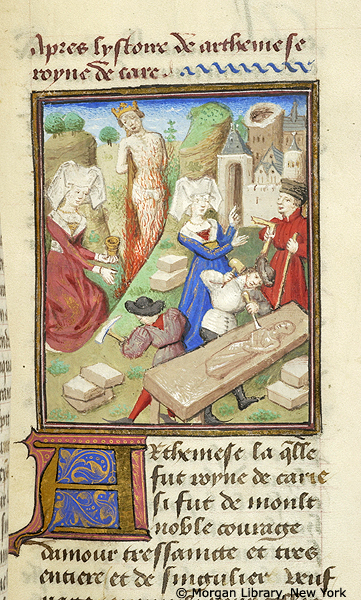 Apres lystoire de arthemese
royne de care
Arthemese la qlle
fut royne de carie
si fut de moult
noble courage
damour tressaincte et tres
entiere et de singulier
© Morgan Library, New York